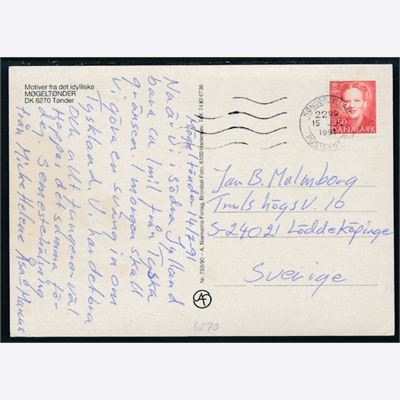 Motiver fra det idylliske
MØGELTØNDER
DK 6270 Tønder
Møgeltønder 14/7 91
Nu är vi i södra Jylland
bara en mil från Tyska
gränsen. I morgon skall
vi göra en sväng in om
Tyskland. Vi har det bra
och allt fungerar väl
Hoppas detsamma för
dej. Semesterhälsning
från Micke Helene
Nr. 753/90 - A. Niemanns Forlag, Bronskat Foto, 6100 Haderslev. Telf. 74 82 47 38
SØNDERJYLLANDS
POSTCENTER
15
1991
DANMARK
Jan B. Malmborg
Trulshögsv. 16
S-24021 Löddeköpinge
Sverige
6270